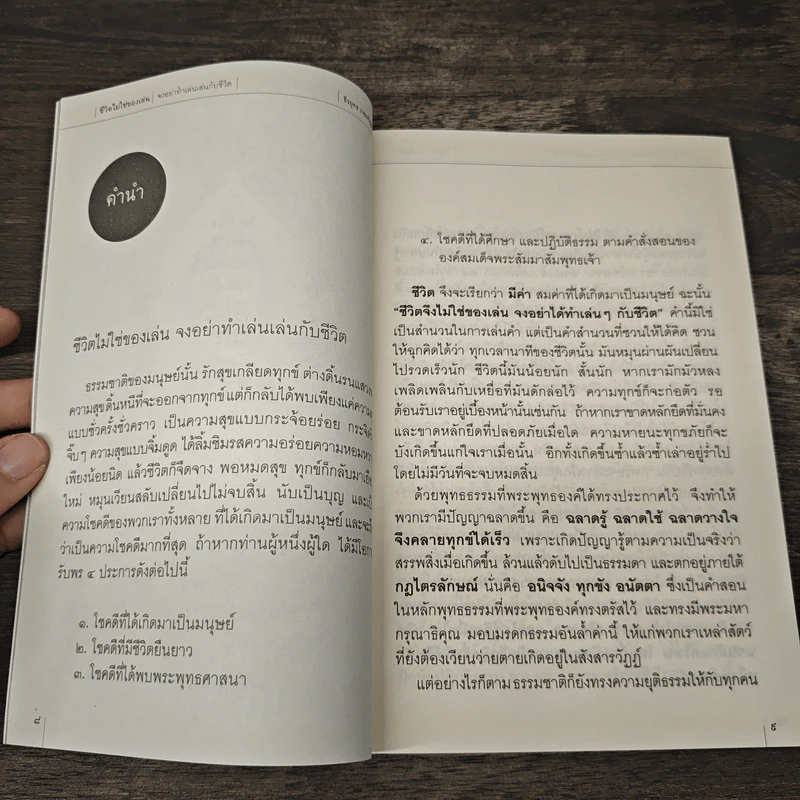 ชีวิตไม่ใช่ของเล่น | จงอย่าทำเล่นเล่นกับชีวิต
คำนำ
ชีวิตไม่ใช่ของเล่น จงอย่าทำเล่นเล่นกับชีวิต
ธรรมชาติของมนุษย์นั้น รักสุขเกลียดทุกข์ ต่างดิ้นรนแสวง
ความสุขดิ้นหนีที่จะออกจากทุกข์ แต่ก็กลับได้พบเพียงแค่ความ
แบบชั่วครั้งชั่วคราว เป็นความสุขแบบกระจ้อยร่อย
จิ๊บๆ ความสุขแบบจิ้มดูด ได้ลิ้มชิมรสความอร่อยความหอม
เพียงน้อยนิด แล้วชีวิตก็จืดจาง พอหมดสุข ทุกข์ก็กลับมา
ใหม่ หมุนเวียนสลับเปลี่ยนไปไม่จบสิ้น นับเป็นบุญ และ
ความโชคดีของพวกเราทั้งหลาย ที่ได้เกิดมาเป็นมนุษย์ และ
ว่าเป็นความโชคดีมากที่สุด ถ้าหากท่านผู้หนึ่งผู้ใด ได้มี
รับพร ๔ ประการดังต่อไปนี้
๑. โชคดีที่ได้เกิดมาเป็นมนุษย์
๒. โชคดีที่มีชีวิตยืนยาว
๓. โชคดีที่ได้พบพระพุทธศาสนา
๘
๔. โชคดีที่ได้ศึกษา และปฏิบัติธรรม ตามคำสั่งสอนของ
องค์สมเด็จพระสัมมาสัมพุทธเจ้า
ชีวิต จึงจะเรียกว่า มีค่า สมค่าที่ได้เกิดมาเป็นมนุษย์ ฉะนั้น
"ชีวิตจึงไม่ใช่ของเล่น จงอย่าได้ทำเล่นๆ กับชีวิต" คำนี้มิใช่
เป็นสำนวนในการเล่นคำ แต่เป็นคำสำนวนที่ชวนให้ได้คิด ชวน
ให้ฉุกคิดได้ว่า ทุกเวลานาทีของชีวิตนั้น มันหมุนผ่านผันเปลี่ยน
ไปรวดเร็วนัก ชีวิตนี้มันน้อยนัก สั้นนัก หากเรามักมัวหลง
เพลิดเพลินกับเหยื่อที่มันดักล่อไว้ ความทุกข์ก็จะก่อตัว รอ
ต้อนรับเราอยู่เบื้องหน้านั้นเช่นกัน ถ้าหากเราขาดหลักยึดที่มั่นคง
และขาดหลักยึดที่ปลอดภัยเมื่อใด ความหายนะทุกขภัยก็จะ
บังเกิดขึ้นแก่ใจเราเมื่อนั้น อีกทั้งเกิดขึ้นซ้ำแล้วซ้ำเล่าอยู่ร่ำไป
โดยไม่มีวันที่จะจบหมดสิ้น
ด้วยพุทธธรรมที่พระพุทธองค์ได้ทรงประกาศไว้ จึงทำให้
พวกเรามีปัญญาฉลาดขึ้น คือ ฉลาดรู้ ฉลาดใช้ ฉลาดวางใจ
จึงคลายทุกข์ได้เร็ว เพราะเกิดปัญญารู้ตามความเป็นจริงว่า
สรรพสิ่งเมื่อเกิดขึ้น ล้วนแล้วดับไปเป็นธรรมดา และตกอยู่ภายใต้
กฎไตรลักษณ์ นั่นคือ อนิจจัง ทุกขัง อนัตตา ซึ่งเป็นคำสอน
ในหลักพุทธธรรมที่พระพุทธองค์ทรงตรัสไว้ และทรงมีพระมหา
กรุณาธิคุณ มอบมรดกธรรมอันล้ำค่านี้ ให้แก่พวกเราเหล่าสัตว์
ที่ยังต้องเวียนว่ายตายเกิดอยู่ในสังสารวัฏฏ์
แต่อย่างไรก็ตาม ธรรมชาติก็ยังทรงความยุติธรรมให้กับทุกคน
๙